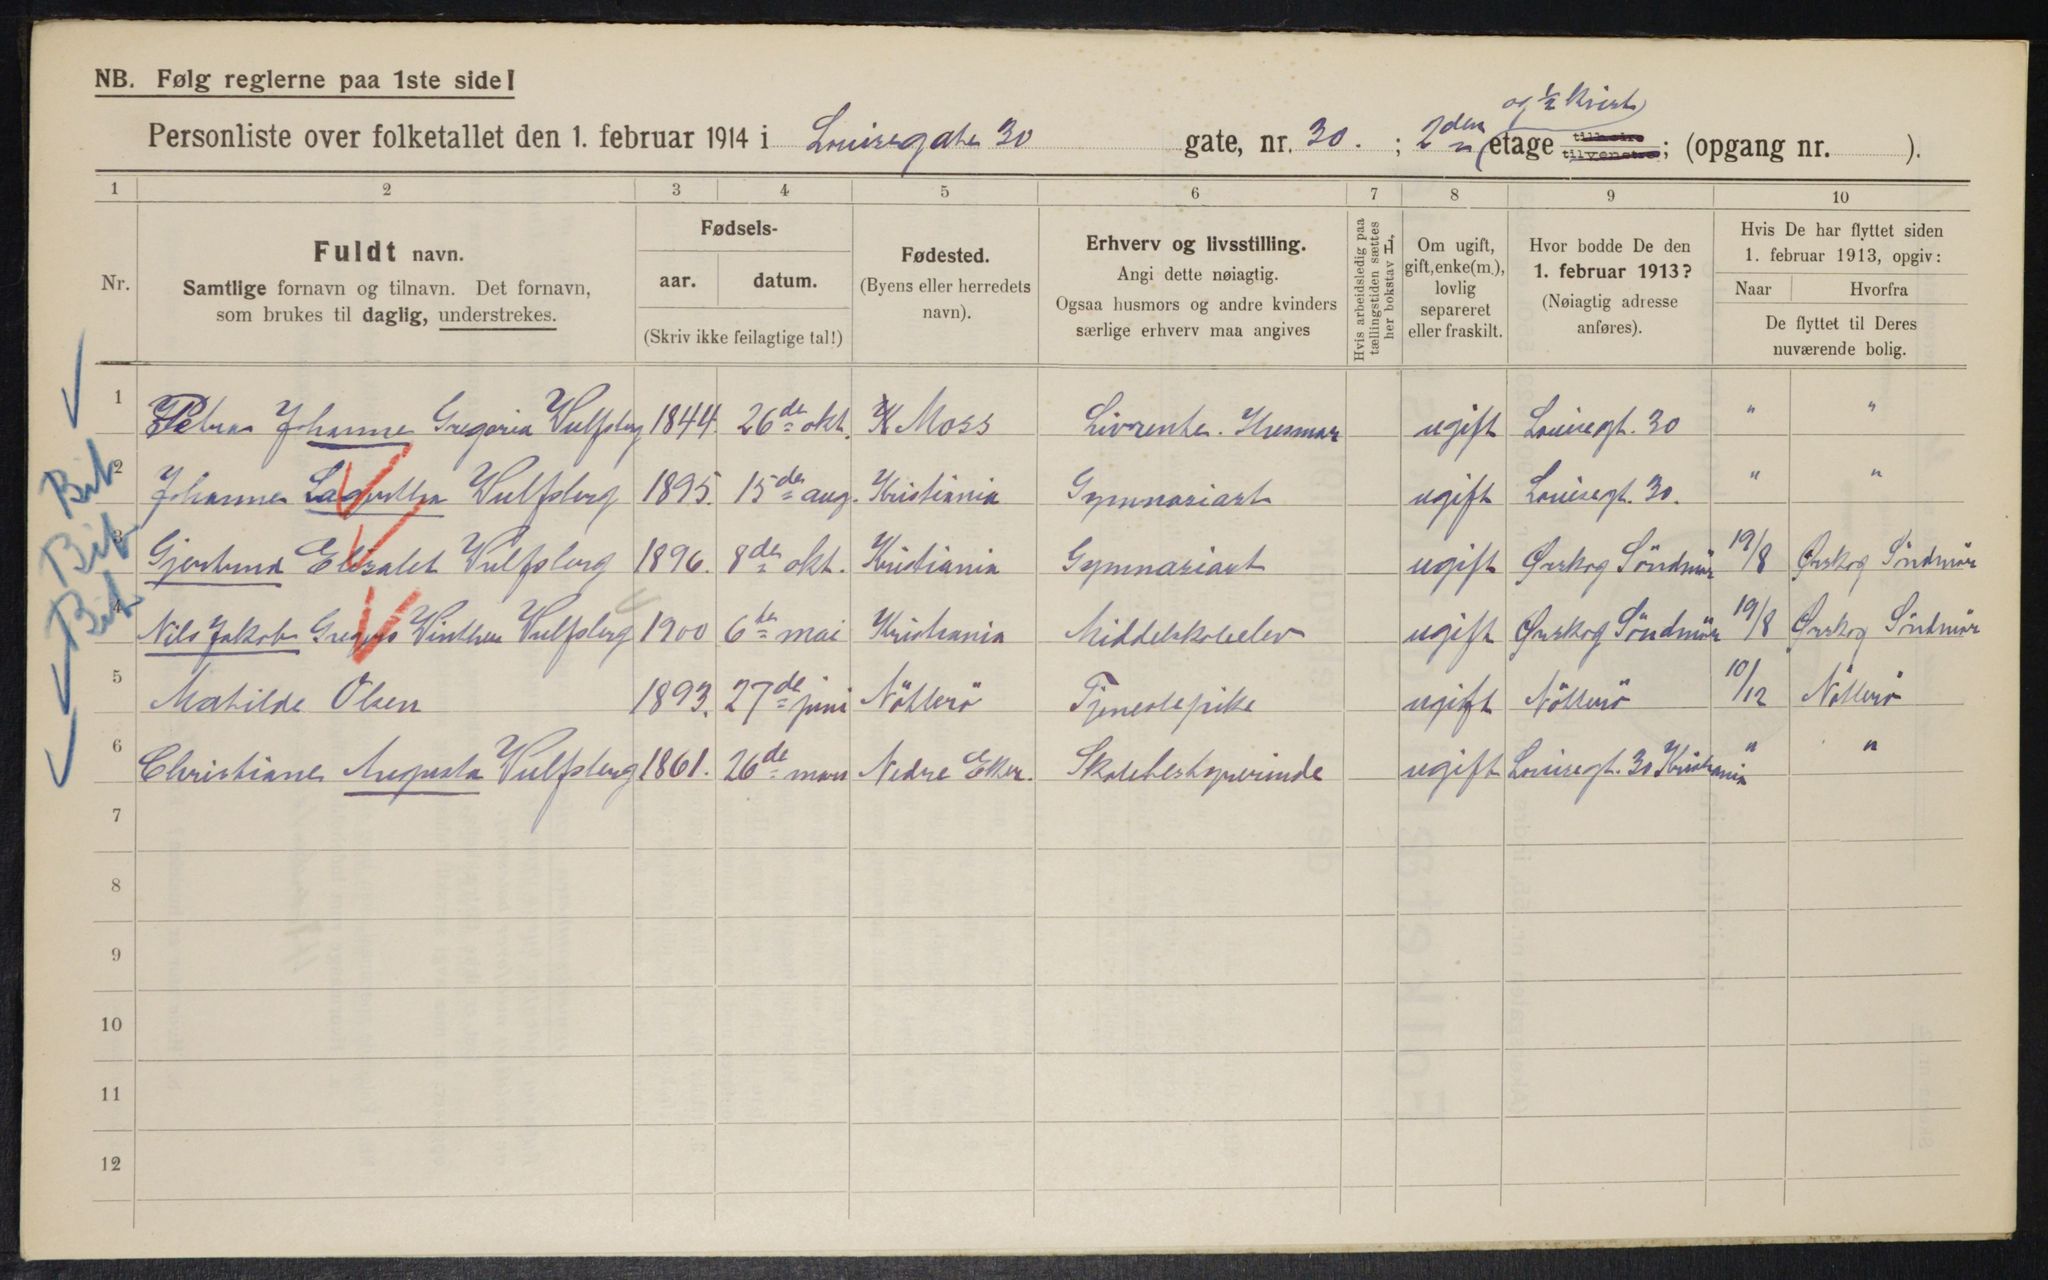 NB. Følg reglerne paa 1ste side!
og ½ Kvist
Personliste over folketallet den 1. februar 1914 i Louisegate 30 gate, nr. 30. ; 2den etage tilhøire tilvenstre; (opgang nr. ).
1 2 3 4 5 6 7 8 9 10
Nr.
Fuldt navn.
Samtlige fornavn og tilnavn. Det fornavn,
som brukes til daglig, understrekes.
Fødsels-
aar. datum.
(Skriv ikke feilagtige tal!)
Fødested.
(Byens eller herredets
navn).
Erhverv og livsstilling.
Angi dette nøiagtig.
Ogsaa husmors og andre kvinders
særlige erhverv maa angives
Hvis arbeidsledig paa
tællingstiden sættes
her bokstav L.
Om ugift,
gift, enke(m.),
lovlig
separeret
eller fraskilt.
Hvor bodde De den
1. februar 1913?
(Nøiagtig adresse
anføres).
Hvis De har flyttet siden
1. februar 1913, opgiv:
Naar Hvorfra
De flyttet til Deres
nuværende bolig.
1 Petra Johanne Gregoria Wulfsberg 1844. 26de okt. Moss Livrente. Husmor ugift Louisegt. 30 " "
Bib 2 Johanne Lagertha Wulfsberg 1895. 15de aug. Kristiania Gymnasiast ugift Louisegt. 30. " "
Bib 3 Gjertrud Elisabet Wulfsberg 1896. 8de okt. Kristiania Gymnasiast ugift Ørskog Söndmör 19/8 Ørskog Söndmör
Bib 4 Nils Jakob Gregers Winther Wulfsberg 1900 6te mai Kristiania Middelskoleelev ugift Ørskog Söndmör 19/8 Ørskog Söndmör
5 Mathilde Olsen 1893. 27de juni Nötterö Tjenestepike ugift Nötterö 10/12 Nötterö
6 Christiane Augusta Wulfsberg 1861. 26de mars Nedre Eker. Skolebestyrerinde ugift Louisegt. 30 Kristiania " "
7
8
9
10
11
12